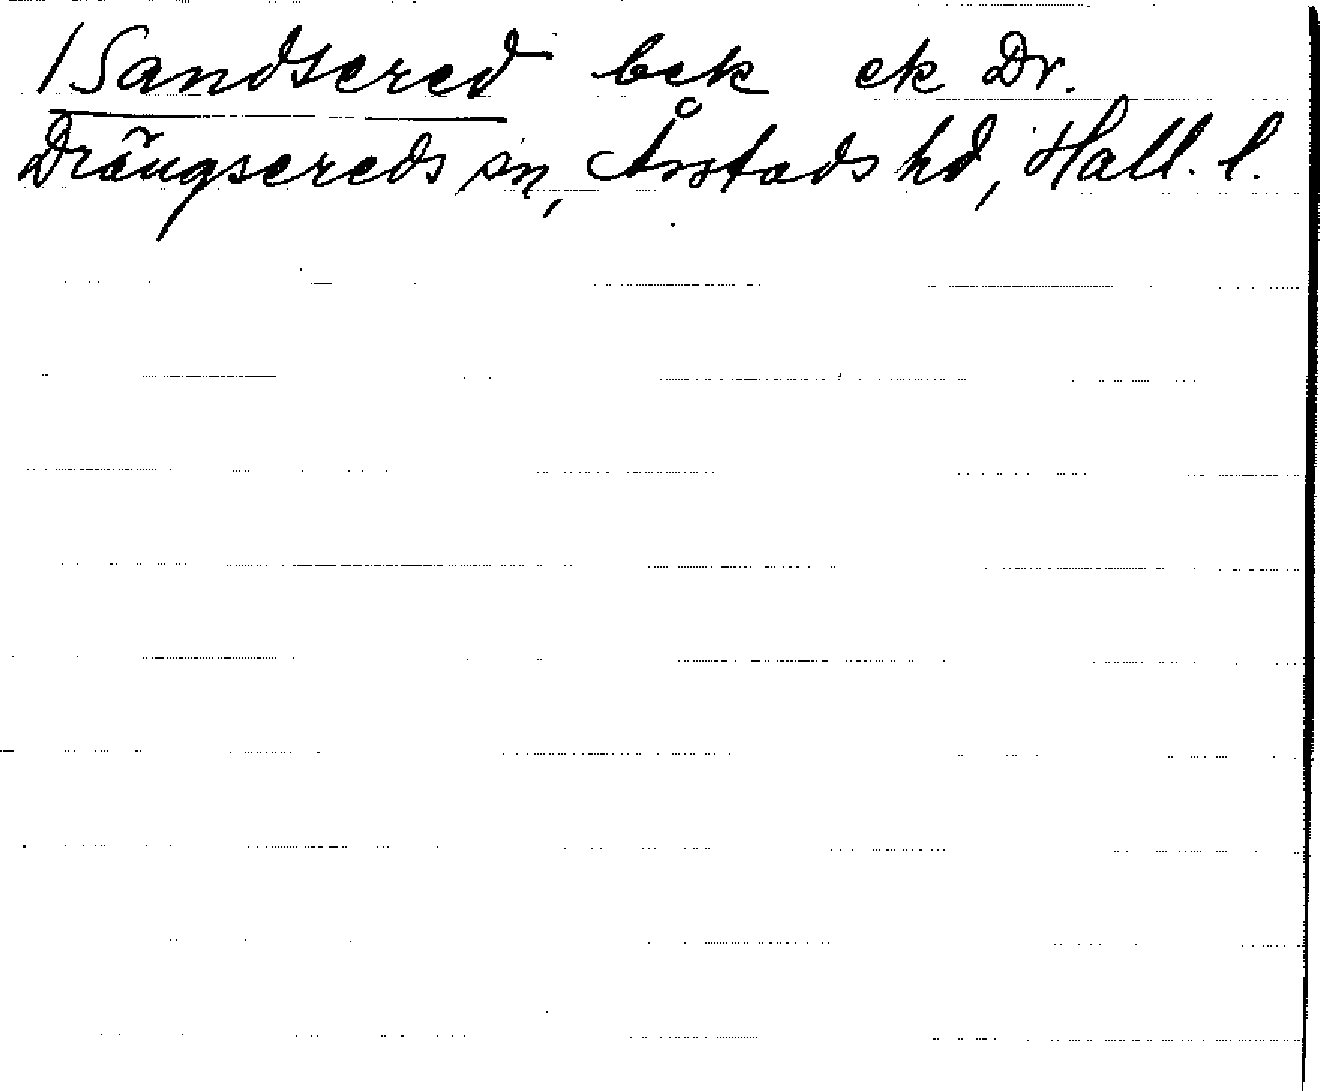 /Sandsered bek ek Dr.
Drängsereds sn, Årstads hd, Hall. l.